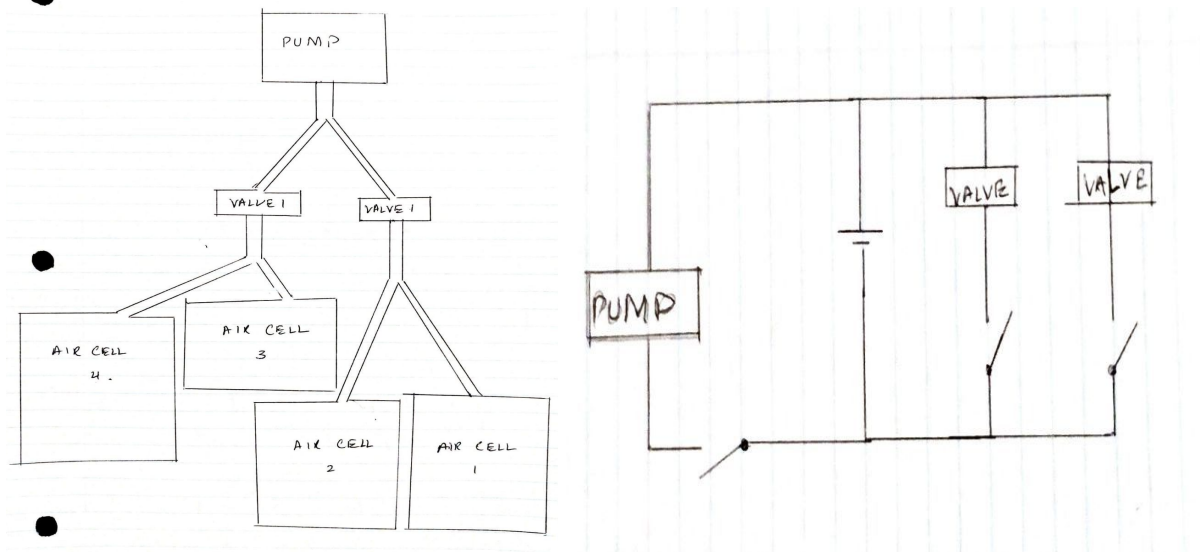 PUMP
VALVE 1
VALVE 1
AIR CELL
3
AIR CELL
4.
AIR CELL
2
AIR CELL
1
VALVE
VALVE
PUMP